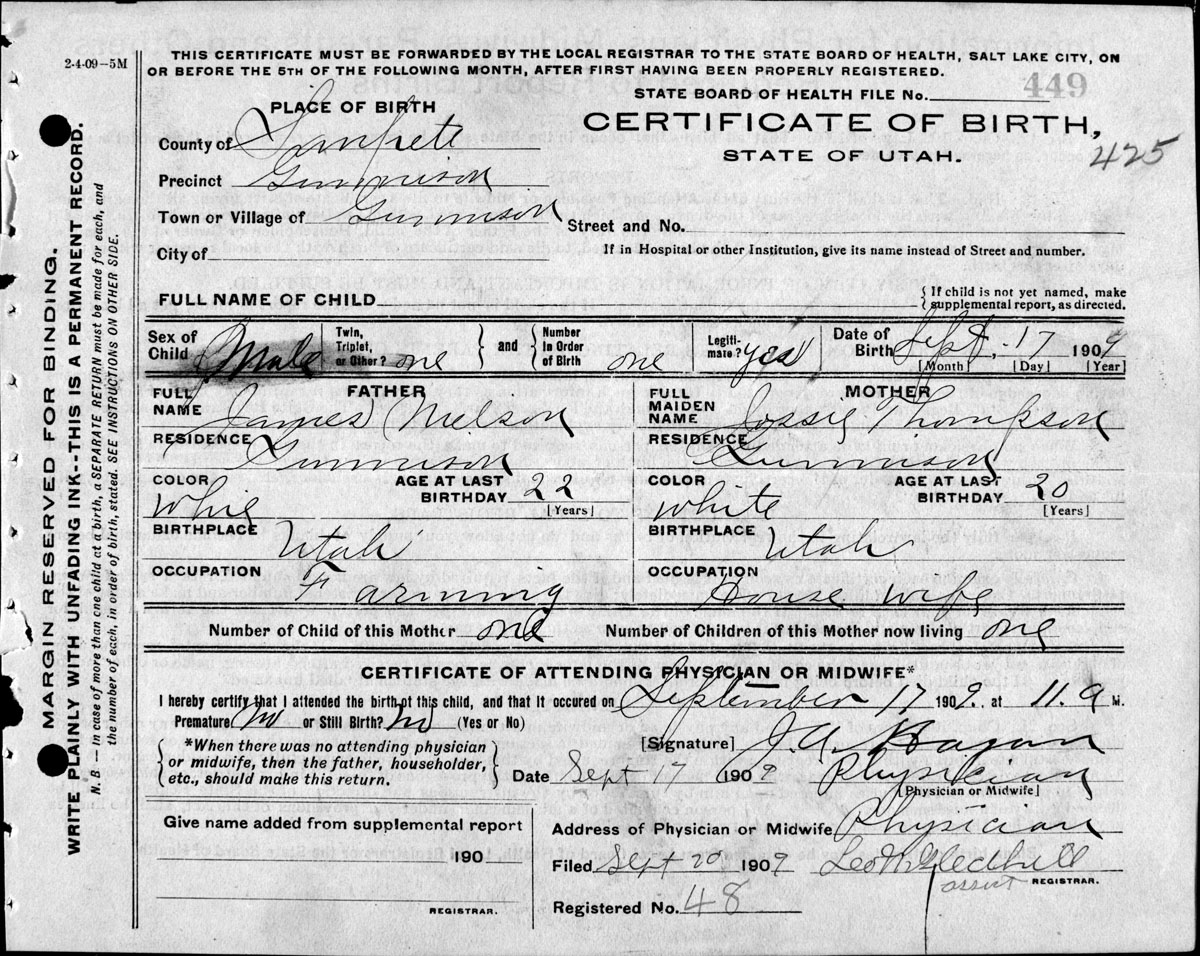 2-4-09-5M
THIS CERTIFICATE MUST BE FORWARDED BY THE LOCAL REGISTRAR TO THE STATE BOARD OF HEALTH, SALT LAKE CITY, ON
OR BEFORE THE 5TH OF THE FOLLOWING MONTH, AFTER FIRST HAVING BEEN PROPERLY REGISTERED.
STATE BOARD OF HEALTH FILE No. 449
PLACE OF BIRTH
CERTIFICATE OF BIRTH,
STATE OF UTAH.
425
County of Sanpete
Precinct Gunnison
Town or Village of Gunnison
Street and No.
City of
If in Hospital or other Institution, give its name instead of Street and number.
FULL NAME OF CHILD
{ If child is not yet named, make
supplemental report, as directed.
Sex of Child Male
Twin, Triplet, or Other? one } and { Number in Order of Birth one
Legiti-mate? yes
Date of Birth Sept. 17 1909
[Month] [Day] [Year]
FATHER
FULL NAME James Nielson
RESIDENCE Gunnison
COLOR Whie
AGE AT LAST BIRTHDAY 22
[Years]
BIRTHPLACE Utah
OCCUPATION Farming
MOTHER
FULL MAIDEN NAME Jossie Thompson
RESIDENCE Gunnison
COLOR White
AGE AT LAST BIRTHDAY 20
[Years]
BIRTHPLACE Utah
OCCUPATION House wife
Number of Child of this Mother one
Number of Children of this Mother now living one
CERTIFICATE OF ATTENDING PHYSICIAN OR MIDWIFE*
I hereby certify that I attended the birth of this child, and that it occured on September 17 1909. at 11. a M.
Premature? no or Still Birth? no (Yes or No)
{ *When there was no attending physician
or midwife, then the father, householder,
etc., should make this return. }
[Signature] J. A. Hagan
Date Sept 17 1909
Physician
[Physician or Midwife]
Give name added from supplemental report
190
REGISTRAR.
Address of Physician or Midwife Physician
Filed Sept 20 1909
Leo Gledhill
assist REGISTRAR.
Registered No. 48
MARGIN RESERVED FOR BINDING.
WRITE PLAINLY WITH UNFADING INK--THIS IS A PERMANENT RECORD.
N. B. — In case of more than one child at a birth, a SEPARATE RETURN must be made for each, and
the number of each, in order of birth, stated. SEE INSTRUCTIONS ON OTHER SIDE.